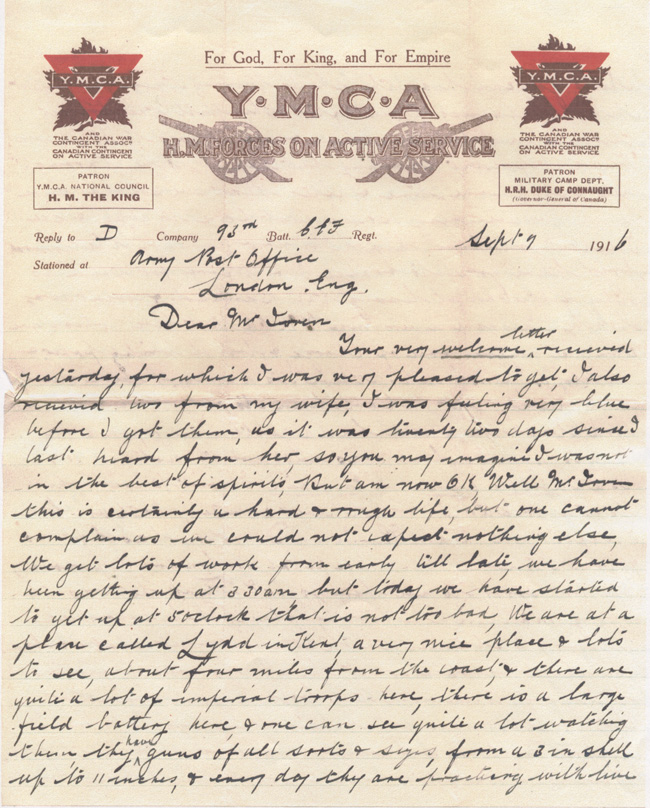 For God, For King, and For Empire
Y.M.C.A.
Y·M·C·A
Y.M.C.A.
AND
THE CANADIAN WAR
CONTINGENT ASSOCT
WITH THE
CANADIAN CONTINGENT
ON ACTIVE SERVICE
H.M. FORCES ON ACTIVE SERVICE
AND
THE CANADIAN WAR
CONTINGENT ASSOCT
WITH THE
CANADIAN CONTINGENT
ON ACTIVE SERVICE
PATRON
Y.M.C.A. NATIONAL COUNCIL
H. M. THE KING
PATRON
MILITARY CAMP DEPT.
H.R.H. DUKE OF CONNAUGHT
(Governor-General of Canada)
Reply to D Company 93rd Batt. C E F Regt. Sept 9 1916
Stationed at Army Post Office
London, Eng.
Dear Mr
Your very welcome letter recieved
yestarday, for which I was very pleased to get, I also
recieved two from my wife, I was feeling very blue
before I got them, as it was twenty two days since I
last heard from her, so you may imagine I was not
in the best of spirits, But am now OK, Well Mr
this is certainly a hard & rough life, but one cannot
complain as we could not expect nothing else,
We get lots of work from early till late, we have
been getting up at 3 30am but today we have started
to get up at 5 oclock that is not too bad, We are at a
place called Lydd in Kent, a very nice place & lots
to see, about four miles from the coast, & there are
quite a lot of imperial troops here, there is a large
field battery here, & one can see quite a lot watching
them they have guns of all sorts & sizes, from a 3 in shell
up to 11 inches, & every day thy are practicing with live